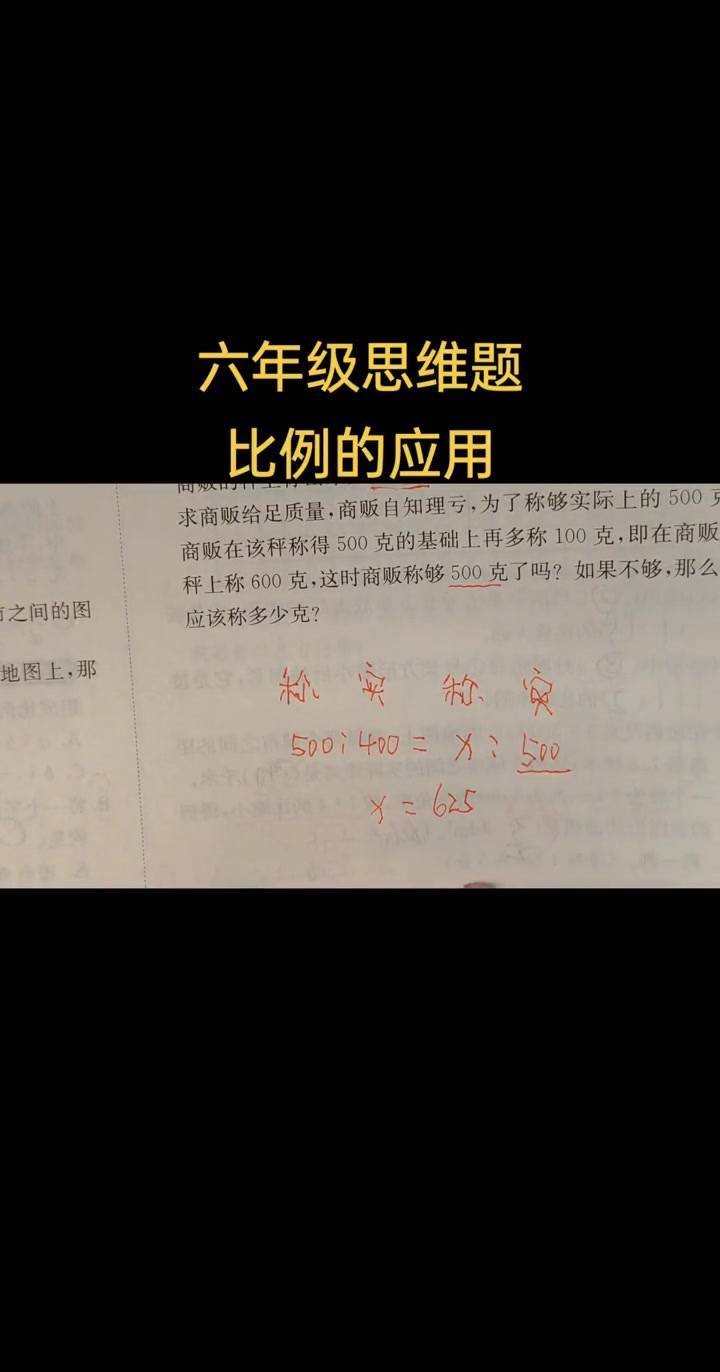 六年级思维题
比例的应用
求商贩给足质量,商贩自知理亏,为了称够实际上的 500
商贩在该秤称得 500 克的基础上再多称 100 克,即在商贩
秤上称 600 克,这时商贩称够 500 克了吗? 如果不够,那么
应该称多少克?
之间的图
地图上,那
称 实 称 实
500:400=x:500
x=625